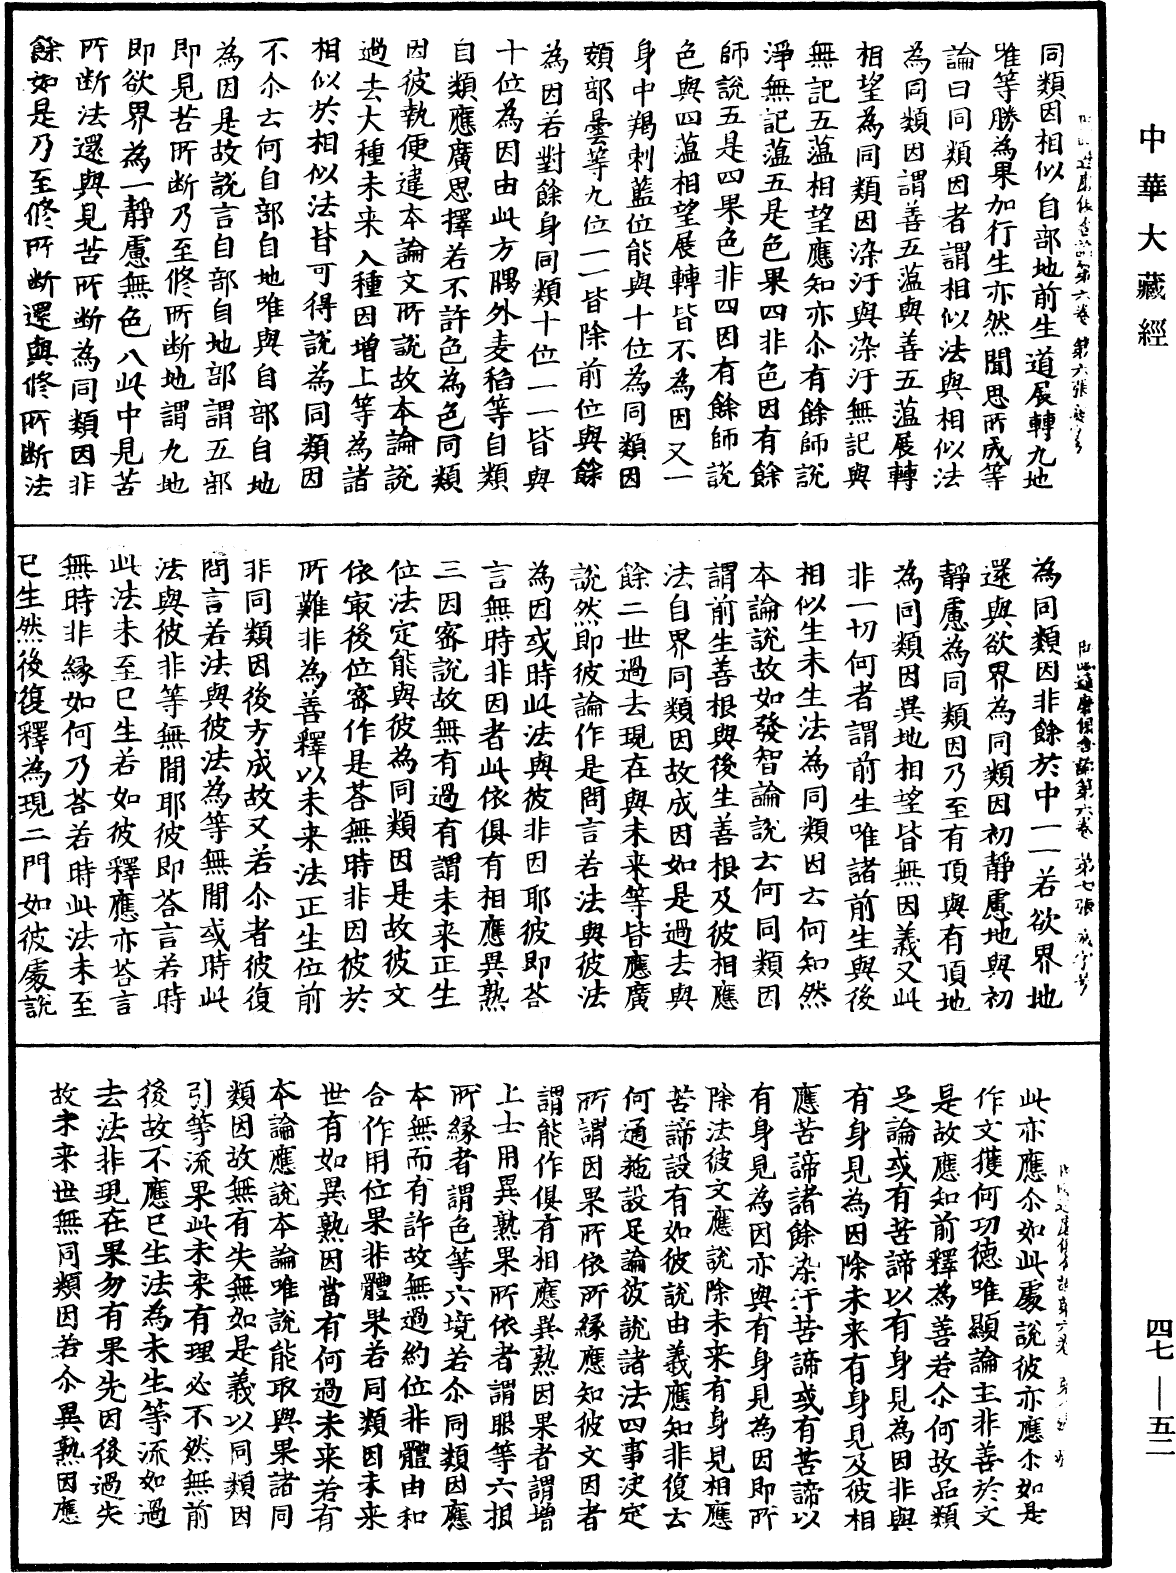 中華大藏經
同類因相似 自部地前生 道展轉九地
唯等勝為果 加行生亦然 聞思所成等
論曰同類因者謂相似法與相似法
為同類因謂善五蘊與善五蘊展轉
相望為同類因染汙與染汙無記與
無記五蘊相望應知亦尒有餘師說
淨無記蘊五是色果四非色因有餘
師說五是四果色非四因有餘師說
色與四蘊相望展轉皆不為因又一
身中羯刺藍位能與十位為同類因
頞部曇等九位一一皆除前位與餘
為因若對餘身同類十位一一皆與
十位為因由此方隅外麦稻等自類
自類應廣思擇若不許色為色同類
因彼執便違本論文所說故本論說
過去大種未來入種因增上等為諸
相似於相似法皆可得說為同類因
不尒云何自部自地唯與自部自地
為因是故說言自部自地部謂五部
即見苦所斷乃至修所斷地謂九地
即欲界為一靜慮無色八此中見苦
所斷法還與見苦所斷為同類因非
餘如是乃至修所斷還與修所斷法
為同類因非餘於中一一若欲界地
還與欲界為同類因初靜慮地與初
靜慮為同類因乃至有頂與有頂地
為同類因異地相望皆無因義又此
非一切何者謂前生唯諸前生與後
相似生未生法為同類因云何知然
本論說故如發智論說云何同類因
謂前生善根與後生善根及彼相應
法自界同類因故成因如是過去與
餘二世過去現在與未來等皆應廣
說然即彼論作是問言若法與彼法
為因或時此法與彼非因耶彼即荅
言無時非因者此依俱有相應異熟
三因密說故無有過有謂未來正生
位法定能與彼為同類因是故彼文
依㝡後位密作是荅無時非因彼於
所難非為善釋以未來法正生位前
非同類因後方成故又若尒者彼復
問言若法與彼法為等無間或時此
法與彼非等無間耶彼即荅言若時
此法未至已生若如彼釋應亦荅言
無時非緣如何乃荅若時此法未至
已生然後復釋為現二門如彼處說
此亦應尒如此處說彼亦應尒如是
作文獲何功德唯顯論主非善於文
是故應知前釋為善若尒何故品類
足論或有苦諦以有身見為因非與
有身見為因除未來有身見及彼相
應苦諦諸餘染汙苦諦或有苦諦以
有身見為因亦與有身見為因即所
除法彼文應說除未來有身見相應
苦諦設有如彼說由義應知非復云
何通施設足論彼說諸法四事決定
所謂因果所依所緣應知彼文因者
謂能作俱有相應異熟因果者謂增
上士用異熟果所依者謂眼等六根
所緣者謂色等六境若尒同類因應
本無而有許故無過約位非體由和
合作用位果非體果若同類因未來
世有如異熟因當有何過未來若有
本論應說本論唯說能取與果諸同
類因故無有失無如是義以同類因
引等流果此未來有理必不然無前
後故不應已生法為未生等流如過
去法非現在果勿有果先因後過失
故未來世無同類因若尒異熟因應
四七—五二